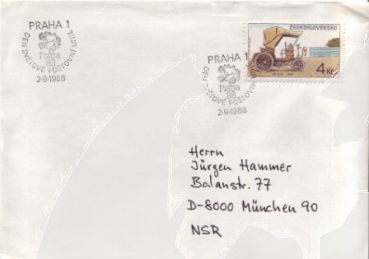 PRAHA 1
Praga
88
DEN SVĚTOVÉ POŠTOVNÍ UNIE
2-9-1988
PRAHA 1
Praga
88
DEN SVĚTOVÉ POŠTOVNÍ UNIE
2-9-1988
ČESKOSLOVENSKO
4 Kčs
Herrn
Jürgen Hammer
Balanstr. 77
D-8000 München 90
NSR